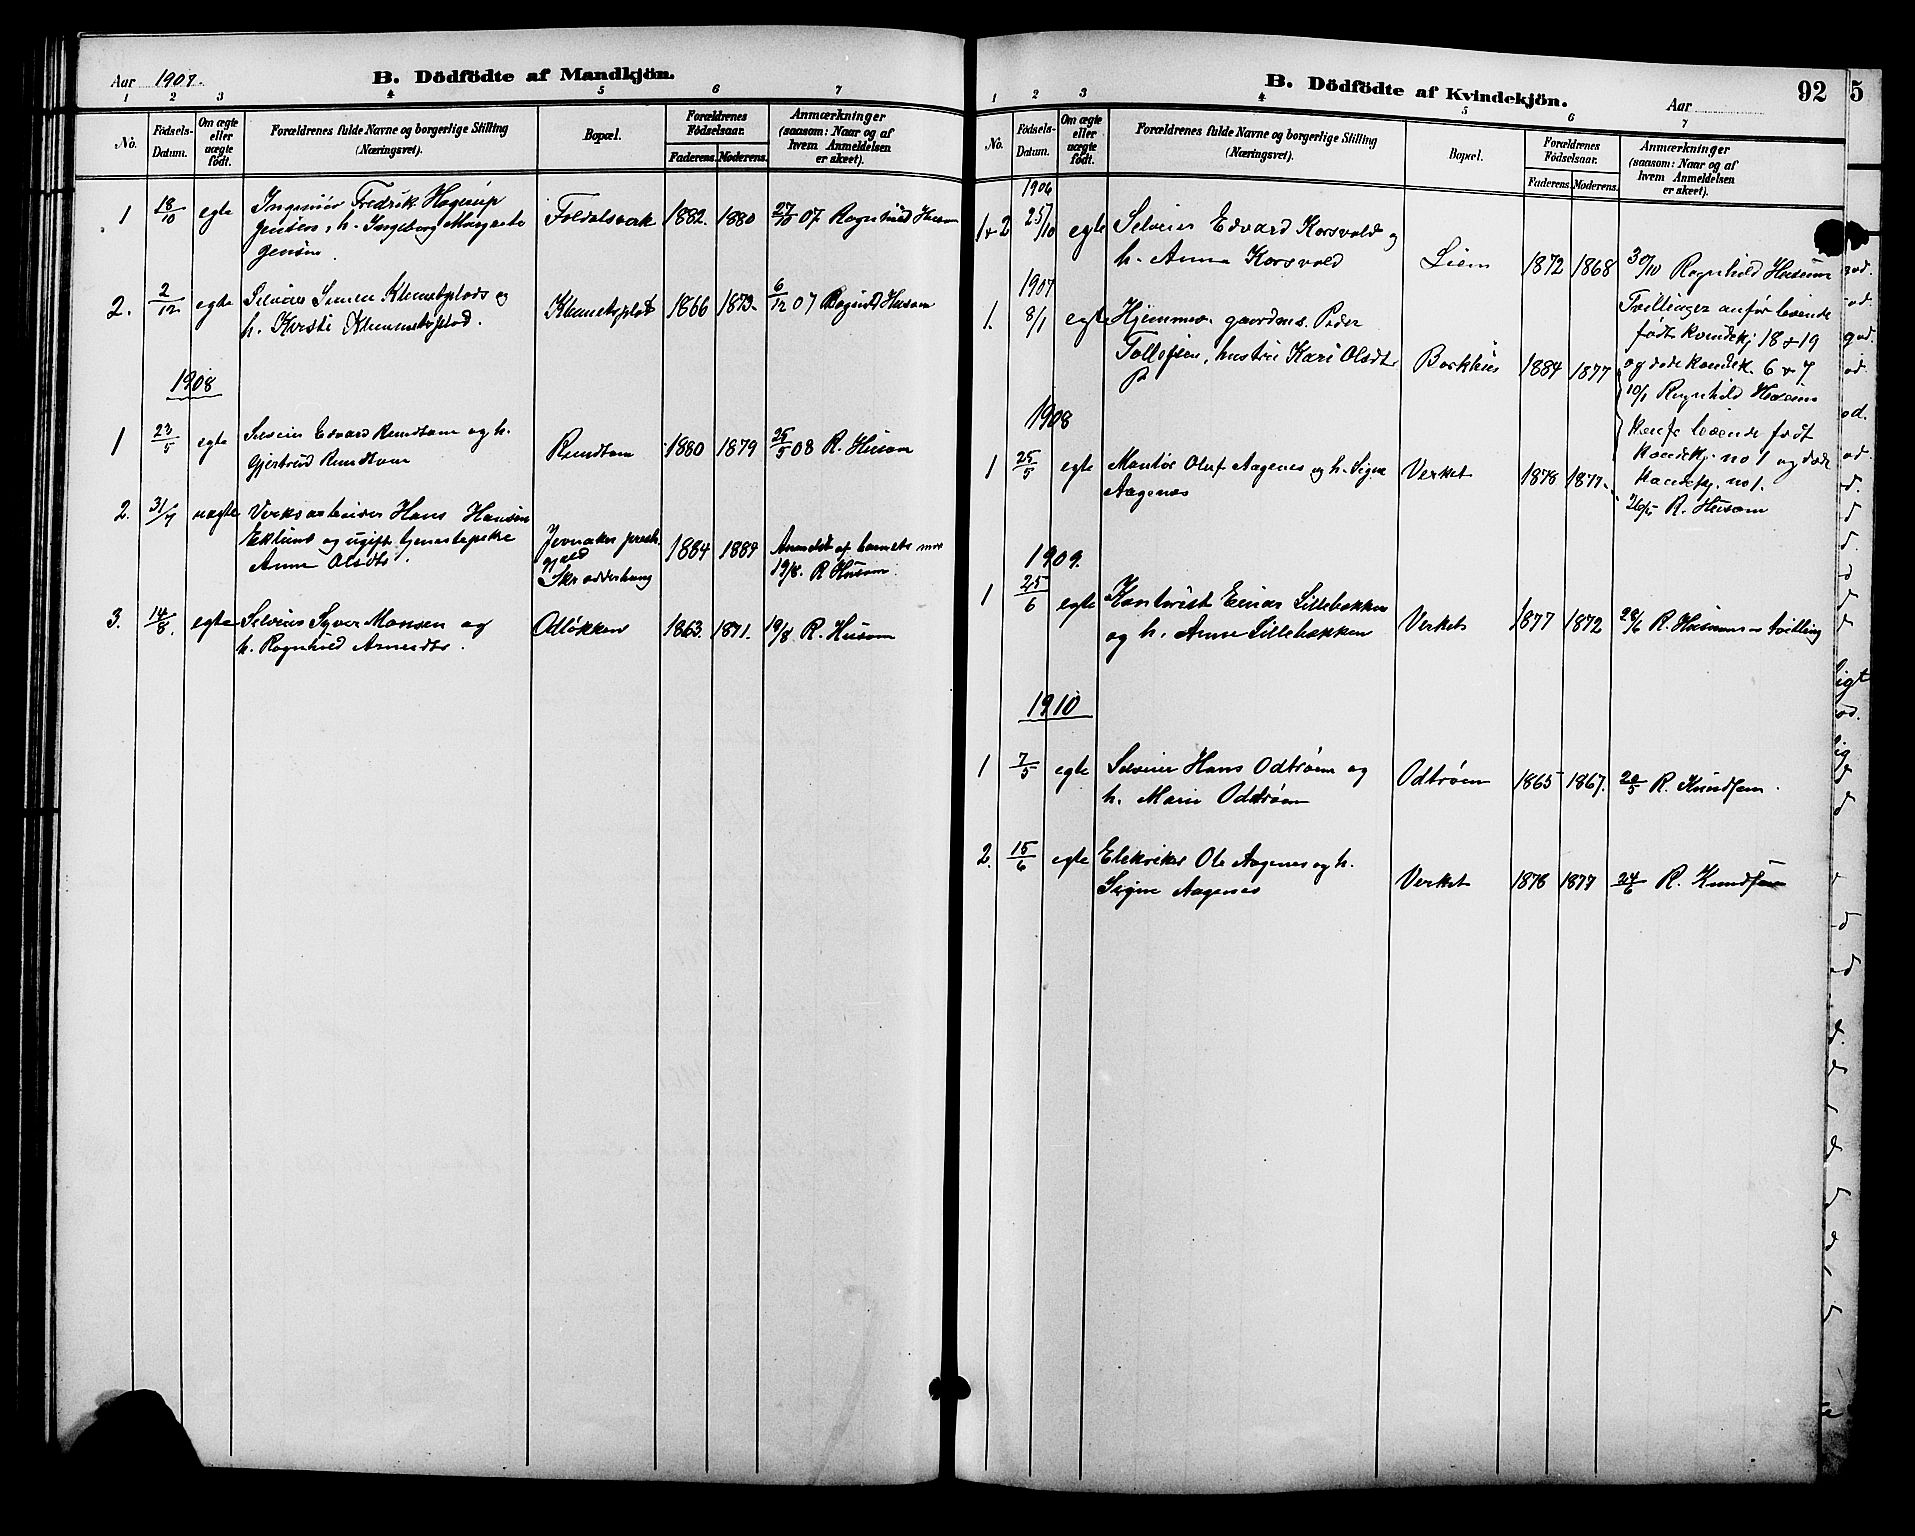 Aar 1907.
B. Dödfödte af Mandkjön.
1 2 3 4 5 6 7
No.
Födsels-
Datum.
Om ægte
eller
uægte
födt.
Forældrenes fulde Navne og borgerlige Stilling
(Næringsvei).
Bopæl.
Forældrenes
Födselsaar.
Faderens. Moderens.
Anmærkninger
(saasom: Naar og af
hvem Anmeldelsen
er skeet).
1 18/10 egte Ingeniør Fredrik Hagerup
Jensen, h. Ingeborg Margrete
Jensen
Foldalsverk 1882. 1880 27/10 07 Ragnhild Husom
2. 2/12 egte Selveier Simen Klemetsplads og
h. Kersti
Klemetsplds 1866 1873. 6/12 07 Ragnh Husom
1908
1 23/5 egte Selveier Edvard Rundtom og h.
Gjertrud Rundtom
Rundtom 1880 1879 25/5 08 R. Husom
2. 31/7 uægte Verksarbeider Hans Hansen
Eklund og ugift tjenestepike
Anne Olsdtr.
Jevnaker prest.
gjeld
1884 1884 Anmeldt af barnets mor
19/8. R Husom
3. 14/8. egte Selveier Syver Monsen og
h. Ragnhild
Odløkken 1863. 1871. 19/8 R. Husom
B. Dödfödte af Kvindekjön.
Aar
92
5
1 2 3 4 5 6 7
No.
Födsels-
Datum.
Om ægte
eller
uægte
födt.
Forældrenes fulde Navne og borgerlige Stilling
(Næringsvei).
Bopæl.
Forældrenes
Födselsaar.
Faderens. Moderens.
Anmærkninger
(saasom: Naar og af
hvem Anmeldelsen
er skeet).
1906
1+2 25/10 egte Selveier Edvard Korsvold og
h. Anne Korsvold
Liem 1872 1868 30/10 Ragnhild Husum
1907
1. 8/1 egte Hjemmev. gaardms. Peder
Tollefsen, hustru Kari Olsdtr
Borkhus 1884 1877
Tvillinger anför levende
født kvindekj 18 + 19
og døde kvindek. 6 + 7
10/1 Ragnhild Husom
1908
levende født
kvindekj. no 1 og døde
kvindekj. no 1.
1 25/5 egte Montör Oluf Aagenes og h. Signe
Aagenes
Verket 1878 1877.
26/5 R. Husom
1909.
1 25/6 egte Kontorist Einar Lillebakken
og h. Anne Lillebakken
Verket 1877 1872 28/6 R. Husom tvilling
1910
1 7/5 egte Selveier Hans Odtrøen og
h. Marie Odtrøen
Odtrøen 1865 1867. 20/5 R. Knudsen.
2. 15/6 egte Elektriker Ole Aagenes og h.
Signe Aagenes
Verket 1878 1877 24/6 R. Knudsen